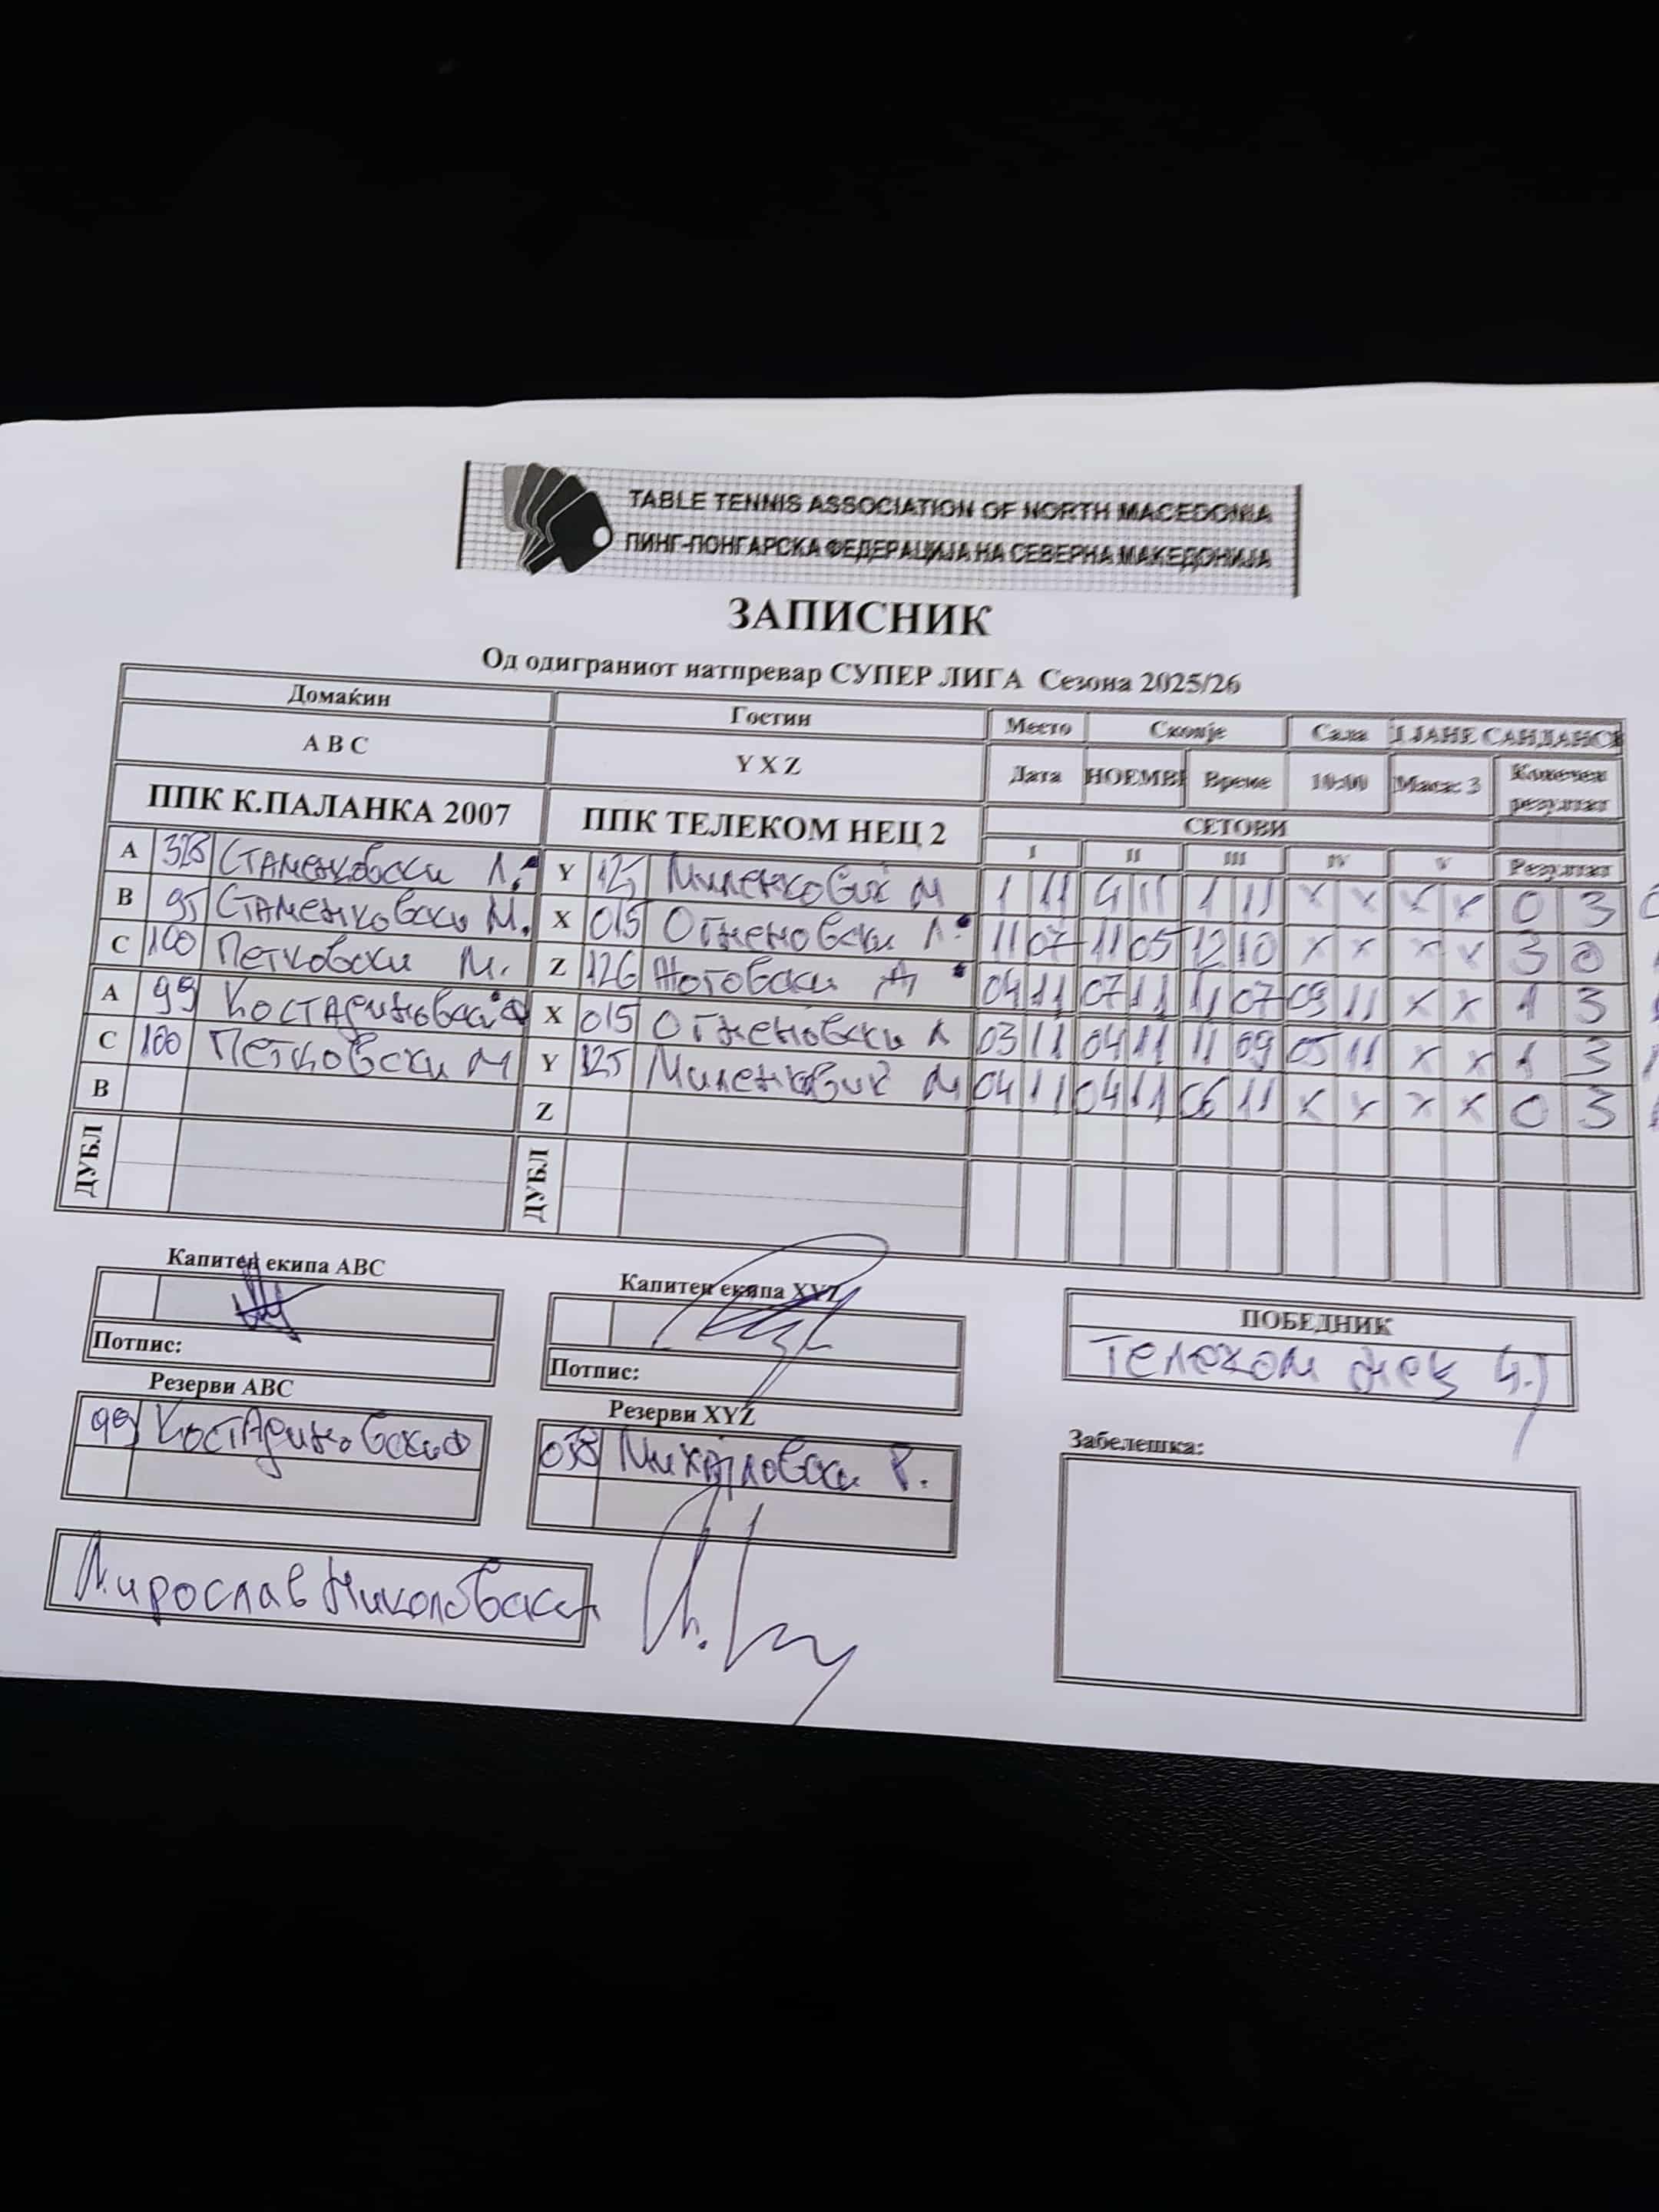 TABLE TENNIS ASSOCIATION OF NORTH MACEDONIA
ПИНГ-ПОНГАРСКА ФЕДЕРАЦИЈА НА СЕВЕРНА МАКЕДОНИЈА
ЗАПИСНИК
Од одиграниот натпревар СУПЕР ЛИГА Сезона 2025/26
Домаќин Гостин Место Скопје Сала ЈАНЕ САНДАНСК
A B C Y X Z Дата НОЕМВІ Време 10:00 Маса: 3 Конечен резултат
ППК К.ПАЛАНКА 2007 ППК ТЕЛЕКОМ НЕЦ 2 СЕТОВИ
I II III IV V Резултат
A 328 Стаменковски Л. Y 125 Миленковиќ М 1 11 4 11 1 11 x x x x 0 3
B 95 Стаменковски М. X 015 Огненовски Л. 11 07 11 05 12 10 x x x x 3 0
C 100 Петковски М. Z 126 Нотовски Д 04 11 07 11 11 07 09 11 x x 1 3
A 99 Костадиновски Ф X 015 Огненовски Л 03 11 04 11 11 09 05 11 x x 1 3
C 100 Петковски М Y 125 Миленковиќ М 04 11 04 11 06 11 x x x x 0 3
B Z
ДУБЛ ДУБЛ
Капитен екипа ABC Капитен екипа XYZ
ПОБЕДНИК
Потпис: Потпис: Телеком нец
Резерви ABC Резерви XYZ
99 Костадиновски Ф 038 Михајловски Р. Забелешка:
Мирослав Николовски